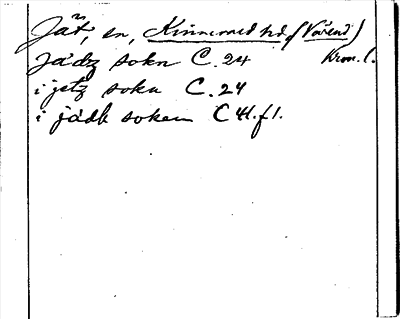 Jät, sn, Kinnevad hd (Värend)
Kron. l.
Jädz sokn C. 24
i jetz sokn C. 24
i jädh soken C 41. f 1.